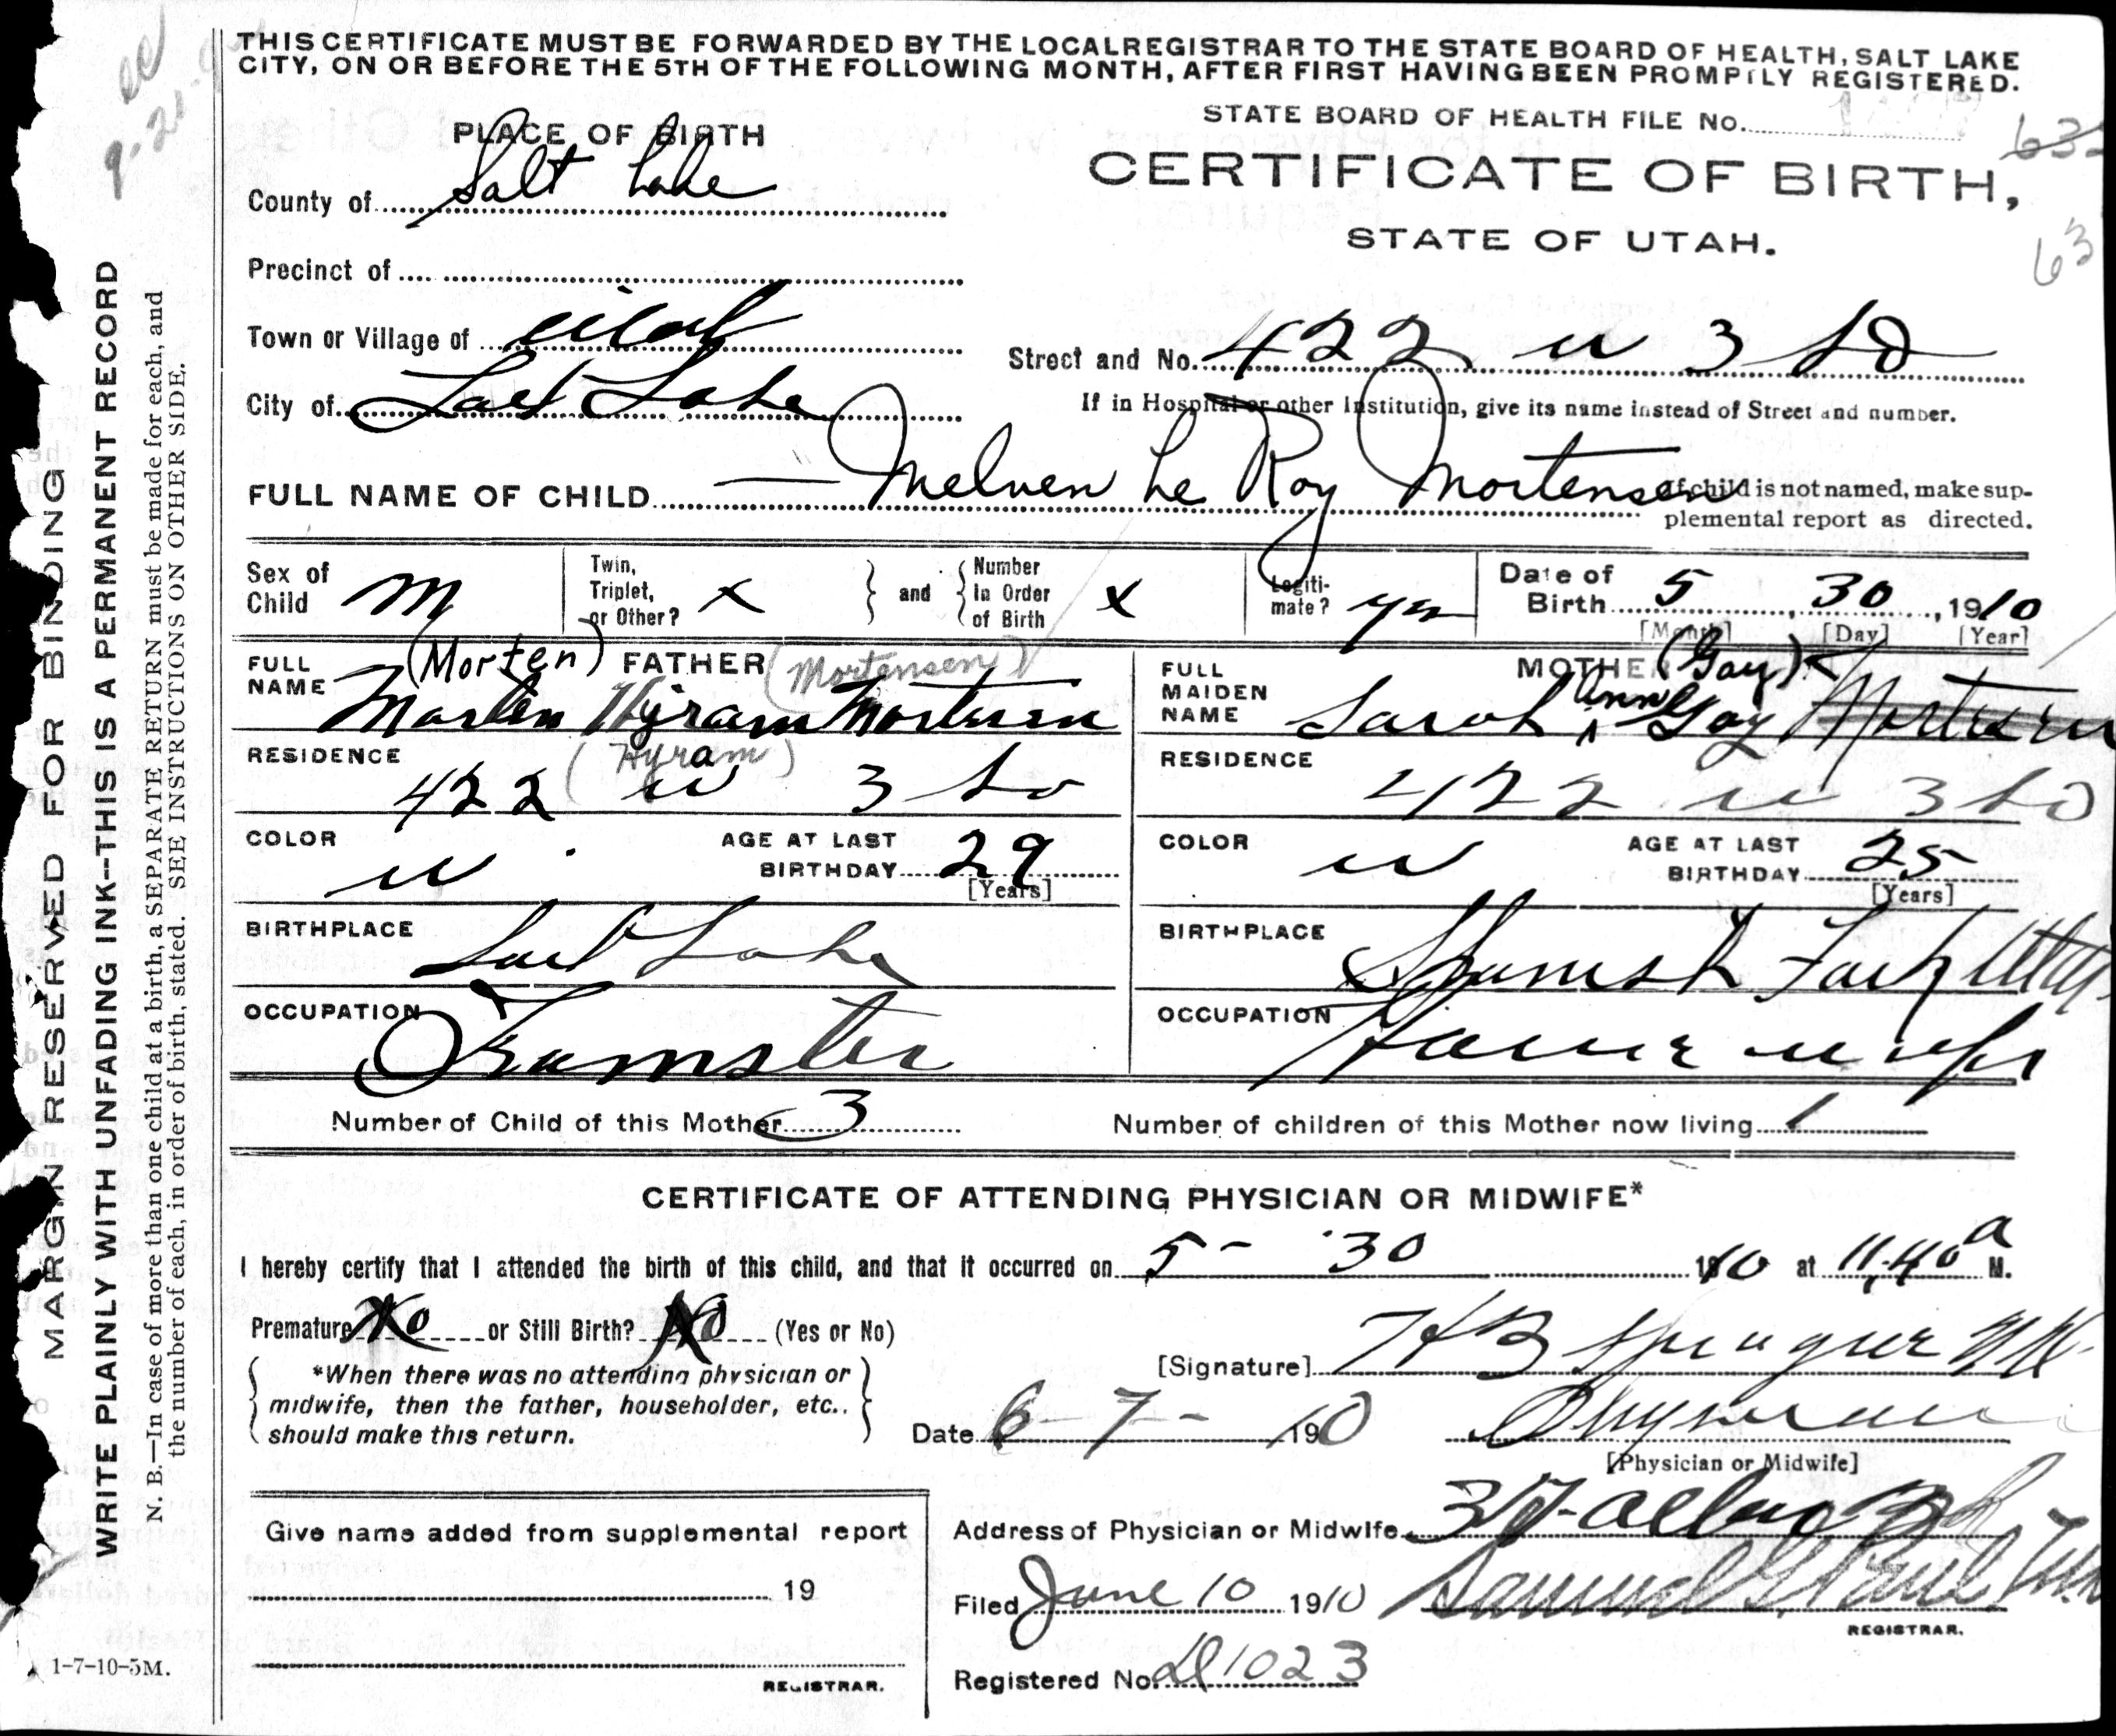 THIS CERTIFICATE MUST BE FORWARDED BY THE LOCAL REGISTRAR TO THE STATE BOARD OF HEALTH, SALT LAKE
CITY, ON OR BEFORE THE 5TH OF THE FOLLOWING MONTH, AFTER FIRST HAVING BEEN PROMPTLY REGISTERED.
STATE BOARD OF HEALTH FILE No.
PLACE OF BIRTH
CERTIFICATE OF BIRTH,
STATE OF UTAH.
63
County of Salt Lake
Precinct of
Town or Village of Utah
Street and No. 422 W 3 So
City of Salt Lake
If in Hospital or other Institution, give its name instead of Street and number.
FULL NAME OF CHILD Melven Le Roy Mortensen
If child is not named, make sup-
plemental report as directed.
Sex of Child M
Twin, Triplet, or Other? X and Number In Order of Birth X
Legiti-mate? yes
Date of Birth 5, 30, 1910
[Month] [Day] [Year]
(Morten) FATHER (Mortensen)
FULL NAME Morten Hyram Mortensen
(Hyram)
RESIDENCE 422 W 3 So
COLOR W
AGE AT LAST BIRTHDAY 29
[Years]
BIRTHPLACE Salt Lake
OCCUPATION Teamster
MOTHER (Gay)
FULL MAIDEN NAME Sarah Ann Gay Mortensen
RESIDENCE 422 W 3 So
COLOR W
AGE AT LAST BIRTHDAY 25
[Years]
BIRTHPLACE Spanish Fork Utah
OCCUPATION House wife
Number of Child of this Mother 3
Number of children of this Mother now living 1
CERTIFICATE OF ATTENDING PHYSICIAN OR MIDWIFE*
I hereby certify that I attended the birth of this child, and that it occurred on 5 - 30 1910 at 11.40 a M.
Premature No or Still Birth? No (Yes or No)
*When there was no attending physician or
midwife, then the father, householder, etc.,
should make this return.
[Signature] H B Sprague M D
Date 6-7- 1910
Physician
[Physician or Midwife]
Address of Physician or Midwife
Give name added from supplemental report
19
REGISTRAR.
Filed June 10 1910 Samuel G. Paul
REGISTRAR.
Registered No. 1023
MARGIN RESERVED FOR BINDING
WRITE PLAINLY WITH UNFADING INK--THIS IS A PERMANENT RECORD
N. B.—In case of more than one child at a birth, a SEPARATE RETURN must be made for each, and
the number of each, in order of birth, stated. SEE INSTRUCTIONS ON OTHER SIDE.
1-7-10-5M.